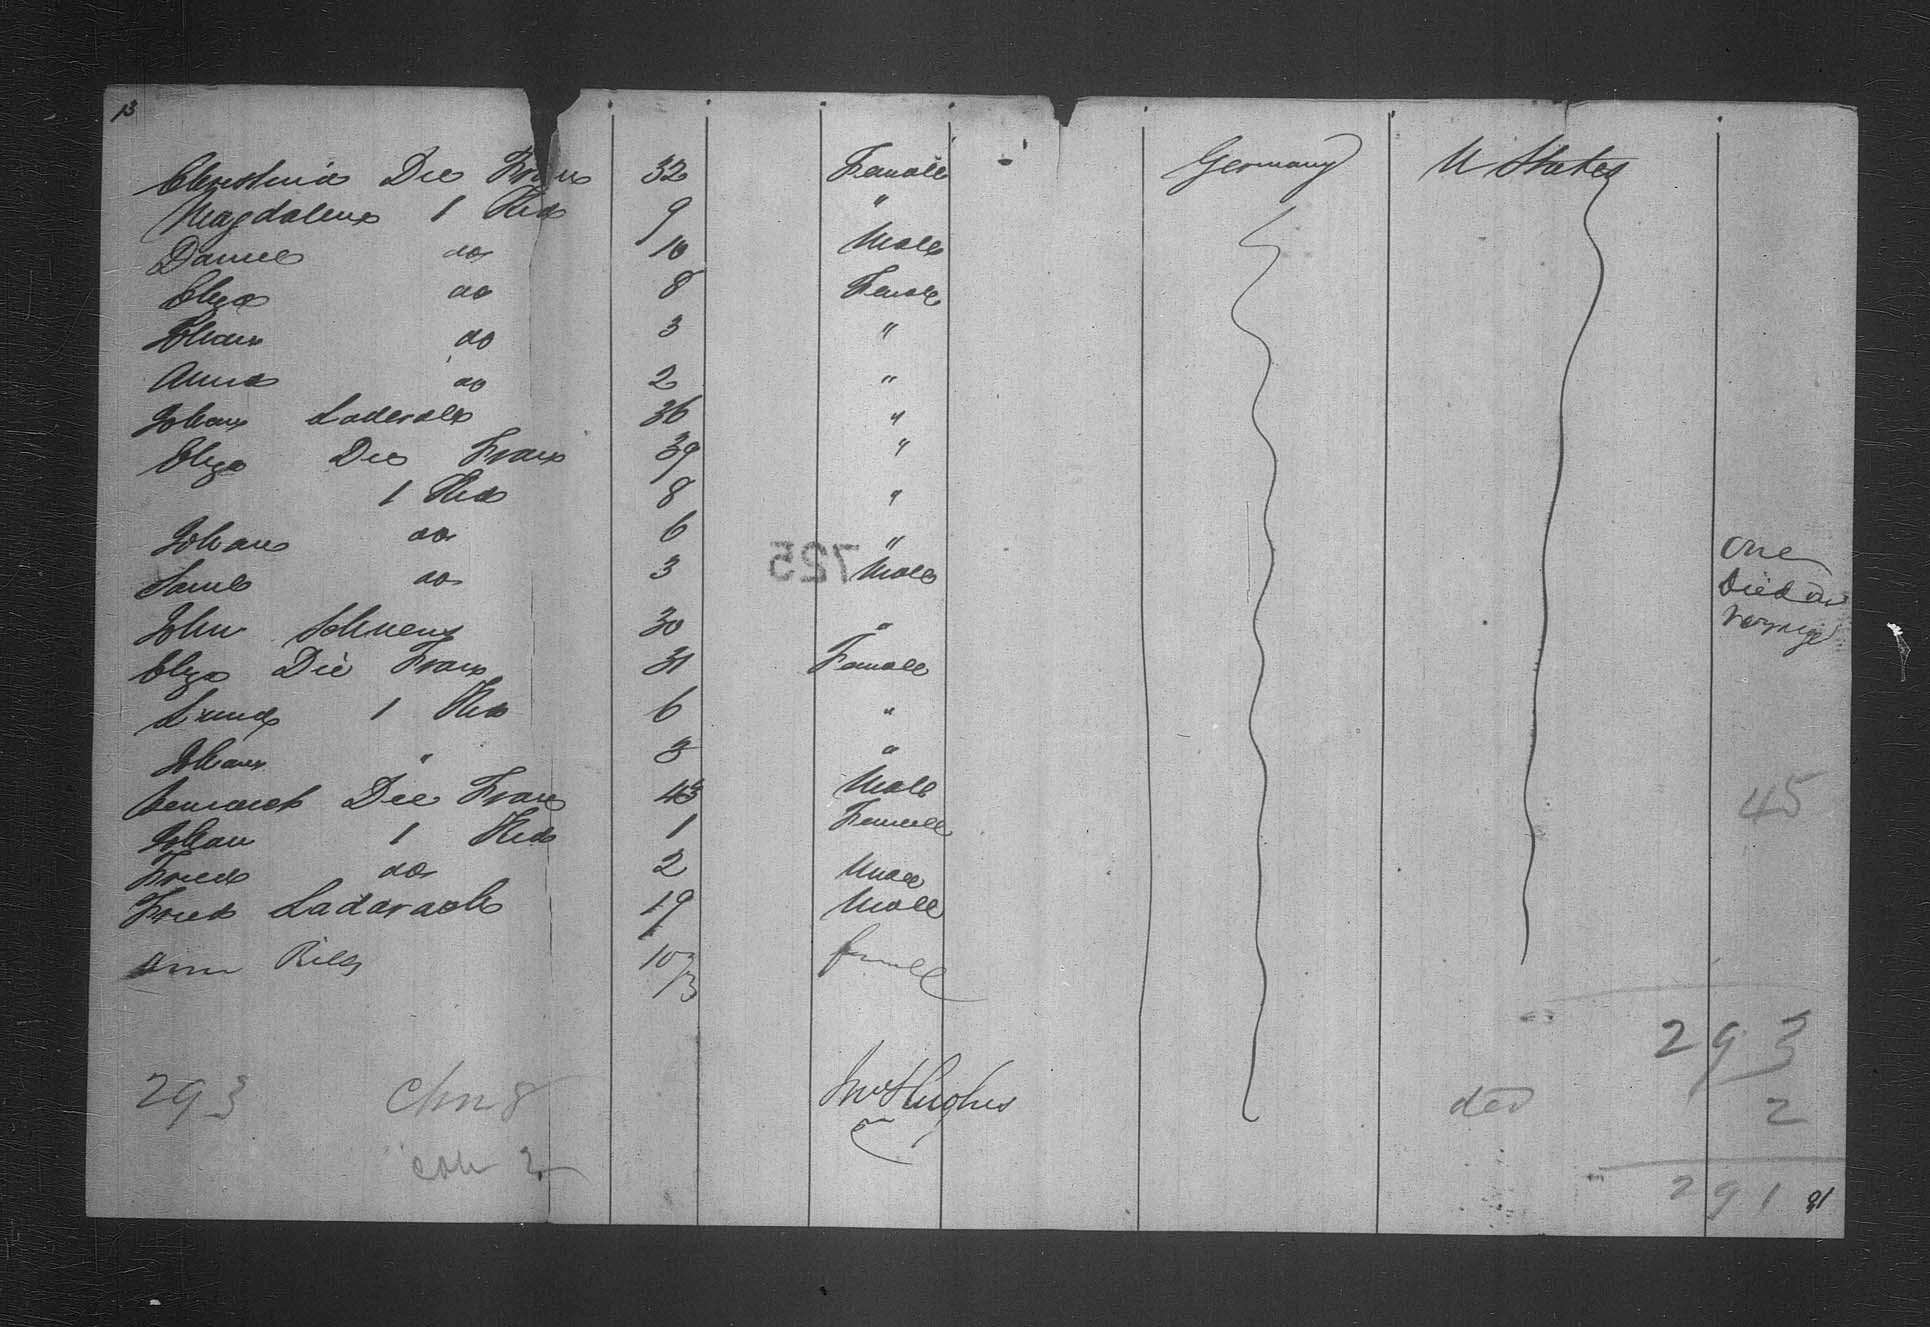 13
Christina Die Frau 32 Female Germany U States
Magdalena 1 Kid 9 "
Daniel do 10 Male
Eliza do 8 Female
Johan do 3 "
Anna do 2 "
Johan Laderale 36 "
Eliza Die Frau 39 "
1 Kid 8 "
Johan do 6 "
725
Saml do 3 Male One
Died on
Voyage
John 30 "
Eliza Die Frau 31 Female
1 Kid 6 "
Johan " 3 "
Die Frau 43 Male 45
Johan 1 Kid 1 Female
Fried do 2 Male
Fried Ladarach 19 Male
Ann 10/3 female
293
293 Chn 8 Jno Hughes ded 2
2
291 91